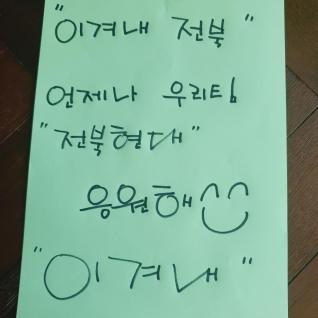 "이겨내 전북"
언제나 우리팀
"전북현대"
응원해
"이겨내"